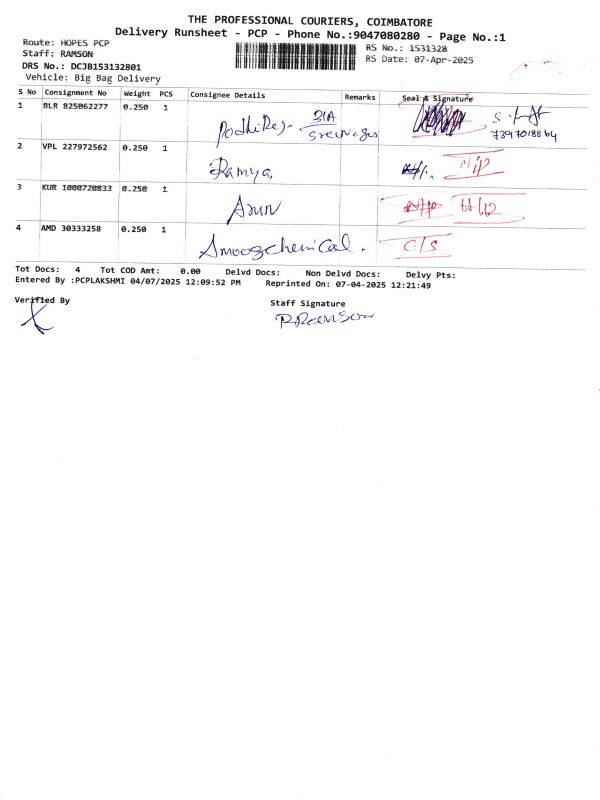 THE PROFESSIONAL COURIERS, COIMBATORE
Delivery Runsheet - PCP - Phone No.:9047080280 - Page No.:1
Route: HOPES PCP
Staff: RAMSON
DRS No.: DCJB153132801
Vehicle: Big Bag Delivery
RS No.: 1531328
RS Date: 07-Apr-2025
S No Consignment No Weight PCS Consignee Details Remarks Seal & Signature
1 BLR 825062277 0.250 1
7397018864
2 VPL 227972562 0.250 1 Ramya
N/P
3 KUR 1000720833 0.250 1 Arun
4 AMD 30333258 0.250 1 Amoogchemical. C/S
Tot Docs: 4 Tot COD Amt: 0.00 Delvd Docs: Non Delvd Docs: Delvy Pts:
Entered By :PCPLAKSHMI 04/07/2025 12:09:52 PM Reprinted On: 07-04-2025 12:21:49
Verified By Staff Signature